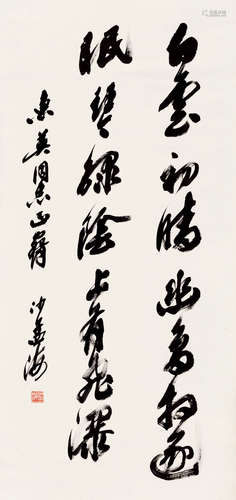 白云初晴幽鸟相逐
眠琴绿阴上有飞瀑
惠英同志正荐
沙孟海